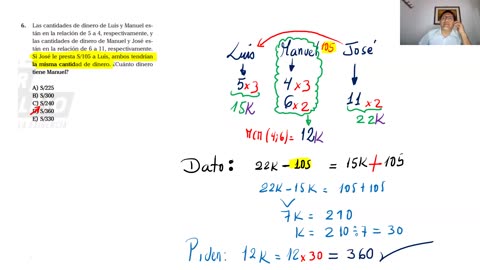 6. Las cantidades de dinero de Luis y Manuel es-
tán en la relación de 5 a 4, respectivamente, y
las cantidades de dinero de Manuel y José es-
tán en la relación de 6 a 11, respectivamente.
Si José le presta S/105 a Luis, ambos tendrían
la misma cantidad de dinero. ¿Cuánto dinero
tiene Manuel?
A) S/225
B) S/300
C) S/240
D) S/360
E) S/330
Luis Manuel 105 José
5×3 4×3
6×2 11×2
15K 22K
MCM(4;6)=12K
Dato: 22K-105 = 15K+105
22K-15K = 105+105
7K = 210
K = 210÷7 = 30
Piden: 12K = 12×30 = 360